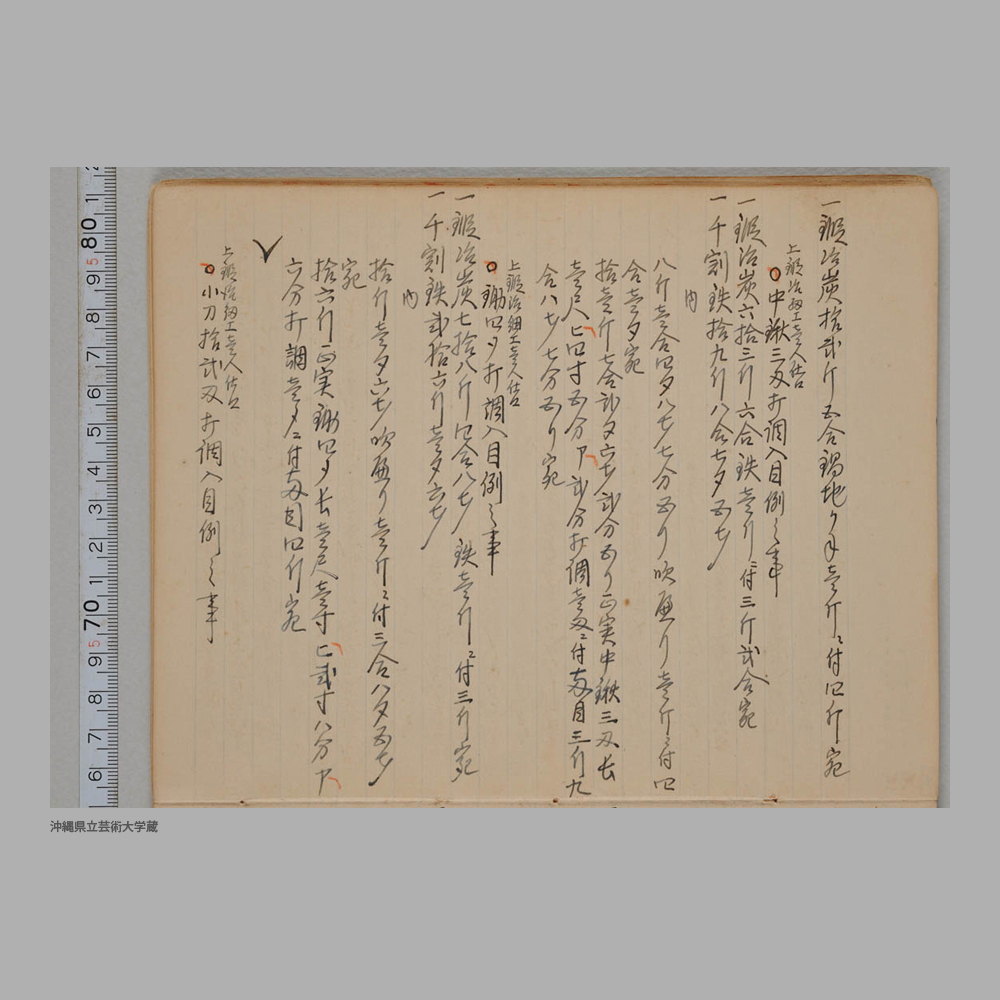 一鍛冶炭拾弐斤五合鍋地ケ子壱斤ニ付四斤宛
上鍛冶細工壱人仕口
中鍬三刄打調入目例之事
一鍛冶炭六拾三斤六合鉄壱斤ニ付三斤弐合宛
一千割鉄拾九斤八合七夕五才
内
八斤壱合四夕八才七分五り吹減り壱斤ニ付四
合壱夕宛
拾壱斤七合弐夕六才弐分五り正実中鍬三刄長
壱尺ヒ四寸五分ア弐分打調壱刄ニ付両目三斤九
合八才七分五り宛
上鍛冶細工壱人仕口
鋤四ツ打調入目例之事
一鍛冶炭七拾八斤四合八才鉄壱斤ニ付三斤宛
一千割鉄弐拾六斤壱夕六才
内
拾斤壱夕六才吹減り壱斤ニ付三合八夕五才
宛
拾六斤正実鋤四ツ長壱尺壱寸ヒ弐寸八分ア
六分打調壱ツニ付両目四斤宛
上鍛冶細工壱人仕口
小刀拾弐刄打調入目例之事
沖縄県立芸術大学蔵